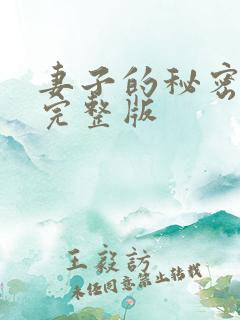 妻子的秘密
完整版
王毅訪
未经同意禁止转载